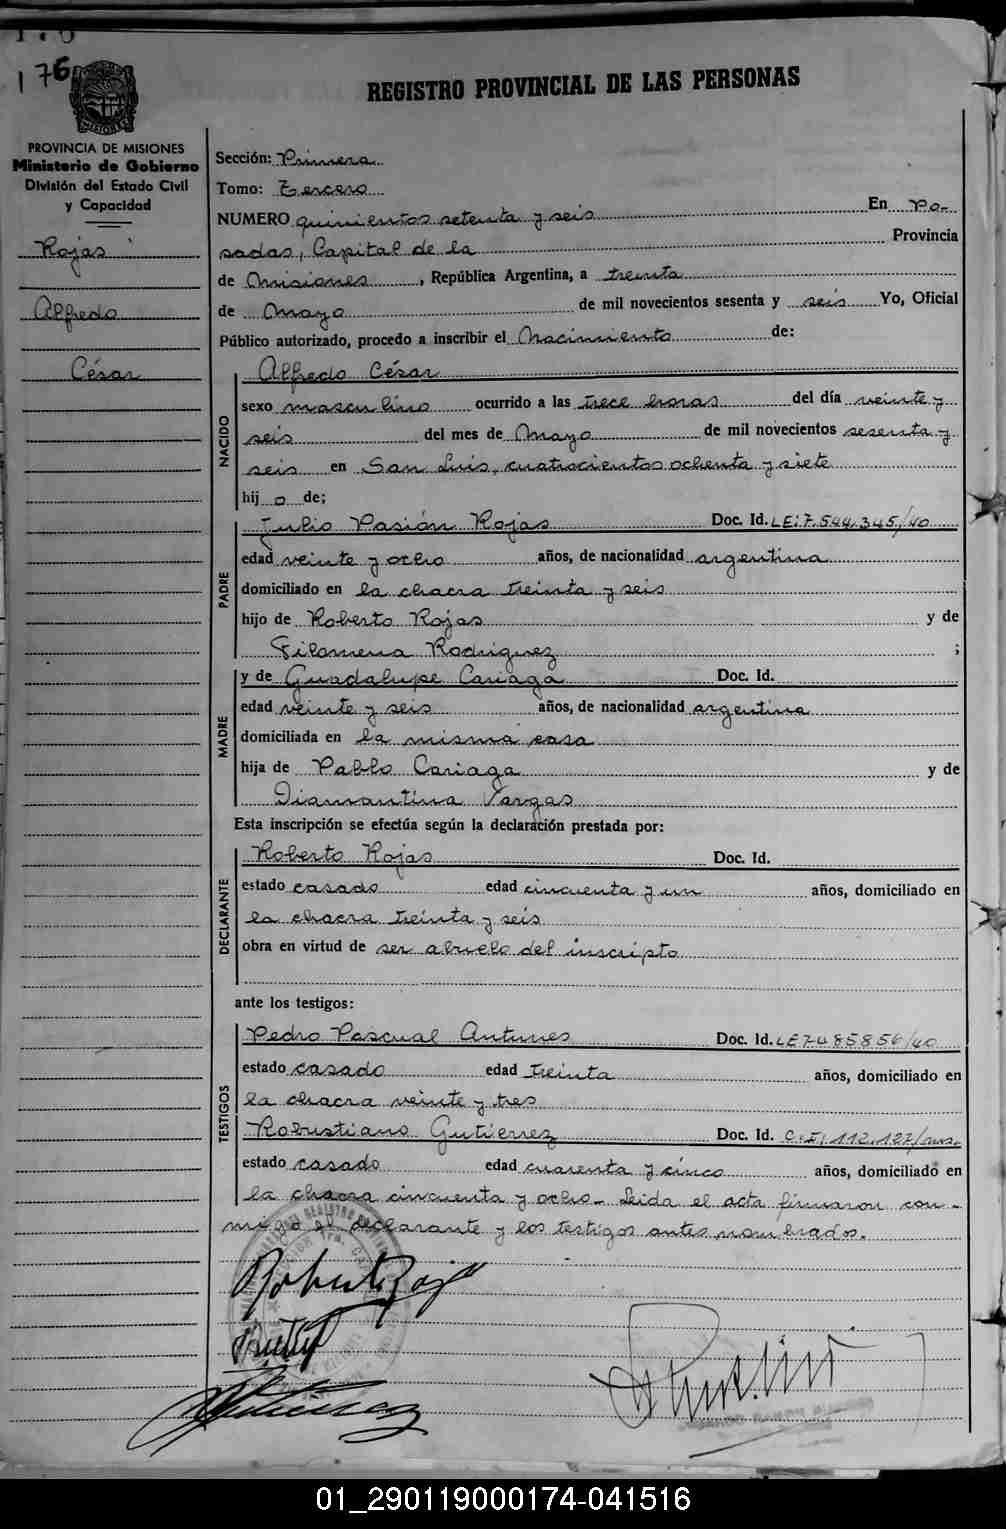 176
REGISTRO PROVINCIAL DE LAS PERSONAS
MISIONES
PROVINCIA DE MISIONES
Ministerio de Gobierno
División del Estado Civil
y Capacidad
Rojas
Alfredo
César
Sección: Primera
Tomo: Tercero
NUMERO quinientos setenta y seis En Po-
sadas, Capital de la Provincia
de Misiones, República Argentina, a treinta
de Mayo de mil novecientos sesenta y seis Yo, Oficial
Público autorizado, procedo a inscribir el Nacimiento de:
NACIDO
Alfredo César
sexo masculino ocurrido a las trece horas del día veinte y
seis del mes de Mayo de mil novecientos sesenta y
seis en San Luis, cuatrocientos ochenta y siete
hij o de;
PADRE
Julio Pasión Rojas Doc. Id. LE: 7.544.345/40
edad veinte y ocho años, de nacionalidad argentina
domiciliado en la chacra treinta y seis
hijo de Roberto Rojas y de
Filomena Rodriguez ;
MADRE
y de Guadalupe Cariaga Doc. Id.
edad veinte y seis años, de nacionalidad argentina
domiciliada en la misma casa
hija de Pablo Cariaga y de
Diamantina Vargas
Esta inscripción se efectúa según la declaración prestada por:
DECLARANTE
Roberto Rojas Doc. Id.
estado casado edad cincuenta y un años, domiciliado en
la chacra treinta y seis
obra en virtud de ser abuelo del inscripto
ante los testigos:
TESTIGOS
Pedro Pascual Antunes Doc. Id. LE 7485856/40
estado casado edad treinta años, domiciliado en
la chacra veinte y tres
Robustiano Gutiérrez Doc. Id. C.I: 112.127/mns.
estado casado edad cuarenta y cinco años, domiciliado en
la chacra cincuenta y ocho_ Leida el acta firmaron con-
migo el declarante y los testigos antes nombrados.
Roberto Rojas
01_290119000174-041516